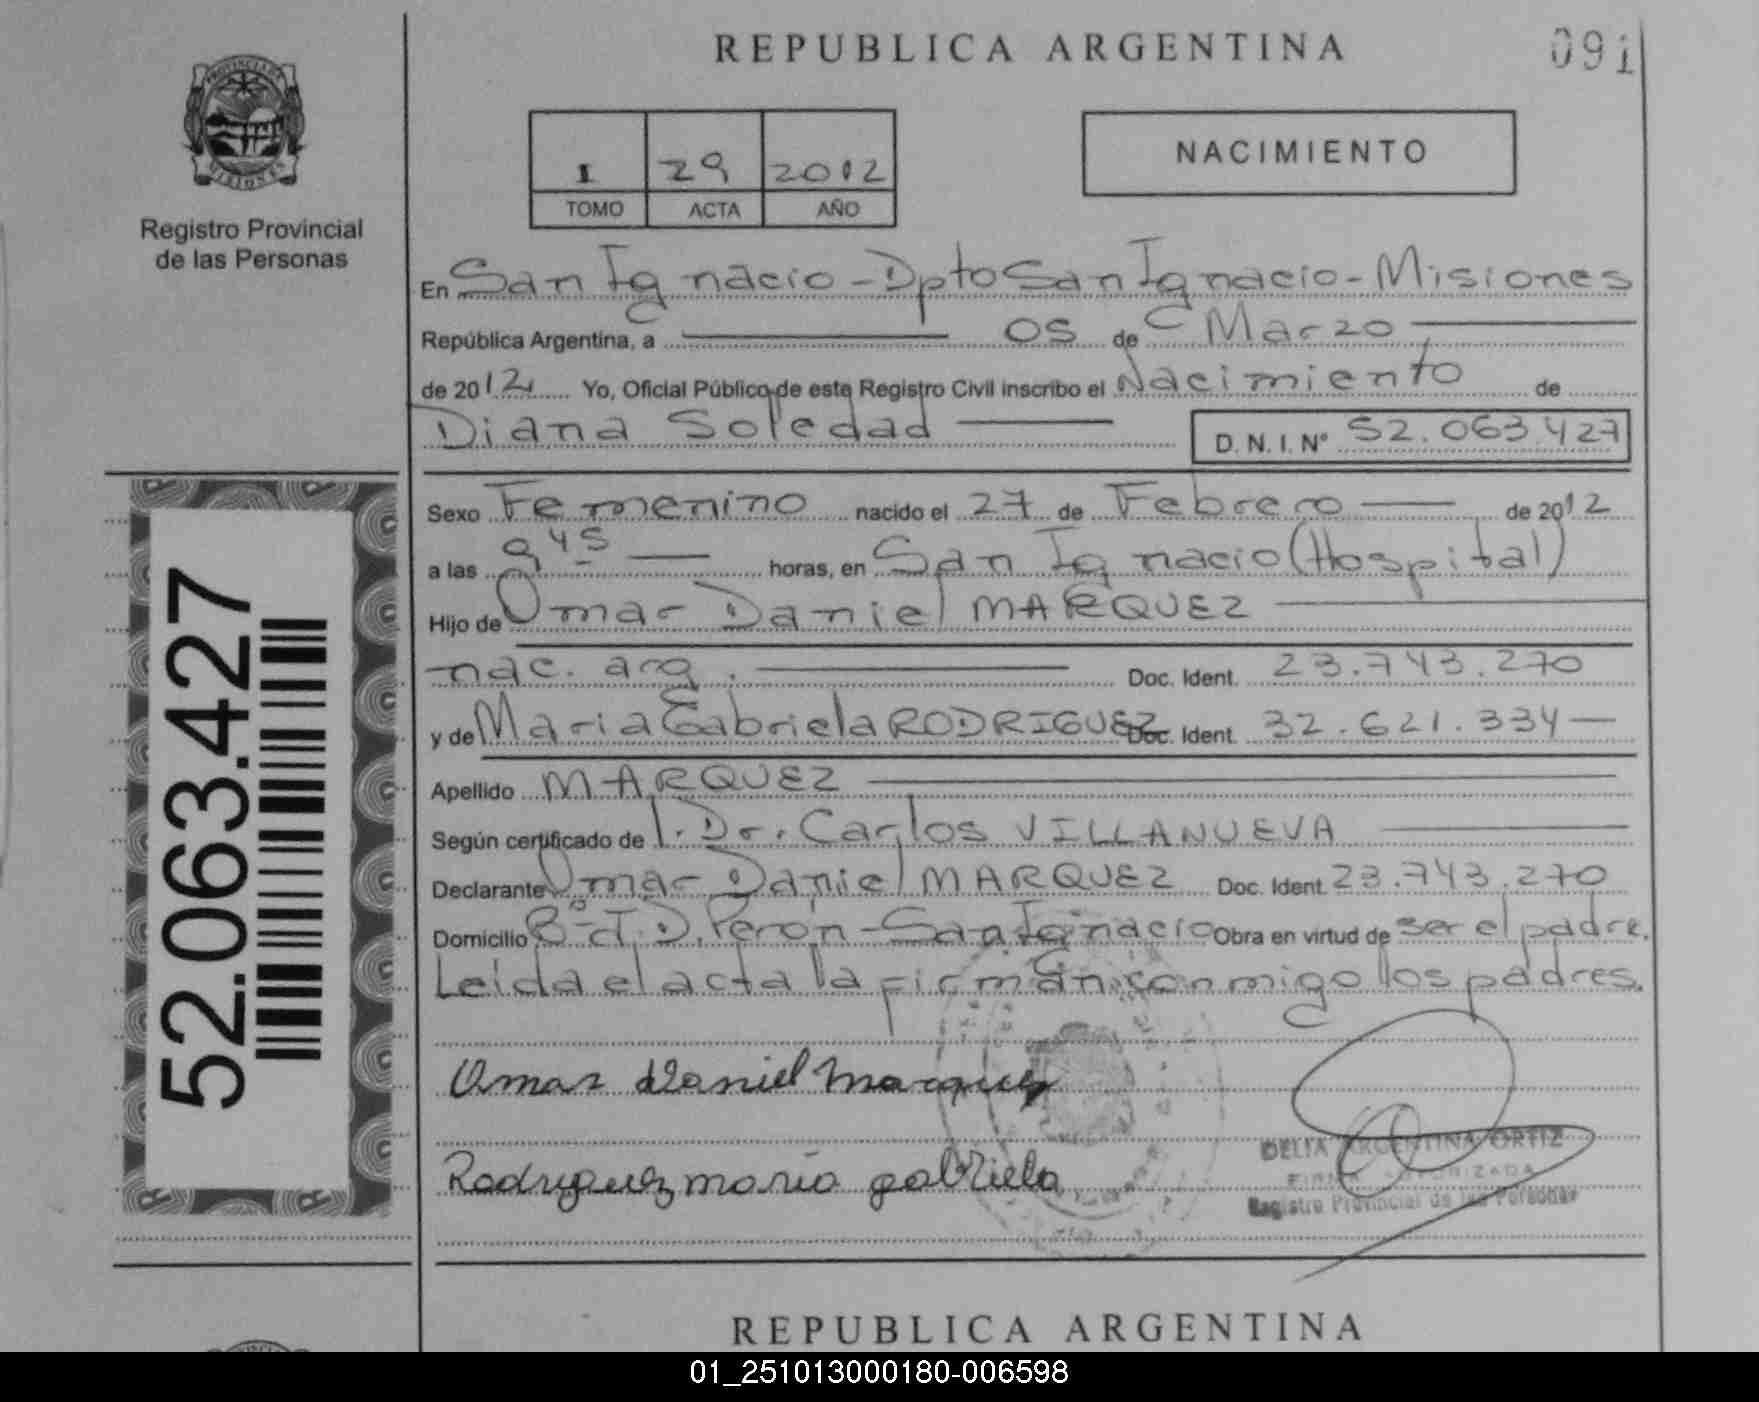 REPUBLICA ARGENTINA
091
PROVINCIA DE
MISIONES
Registro Provincial
de las Personas
I 29 2012
TOMO ACTA AÑO
NACIMIENTO
En San Ignacio - Dpto San Ignacio - Misiones
República Argentina, a 05 de Marzo
de 2012 Yo, Oficial Público de este Registro Civil inscribo el Nacimiento de
Diana Soledad D. N. I. N° 52.063.427
Sexo Femenino nacido el 27 de Febrero de 2012
a las 9 45 horas, en San Ignacio (Hospital)
Hijo de Omar Daniel MARQUEZ
nac. arg. Doc. Ident. 23.743.270
y de Maria Gabriela RODRIGUEZ Doc. Ident. 32.621.334
Apellido MARQUEZ
Según certificado de l. Dr. Carlos VILLANUEVA
Declarante Omar Daniel MARQUEZ Doc. Ident. 23.743.270
Domicilio B° J. D. Perón - San Ignacio Obra en virtud de ser el padre.
Leida el acta la firman conmigo los padres.
Omar Daniel Marquez
DELIA ARGENTINA ORTIZ
FIRMA AUTORIZADA
Registro Provincial de las Personas
Rodriguez maria gabriela
52.063.427
REPUBLICA ARGENTINA
01_251013000180-006598